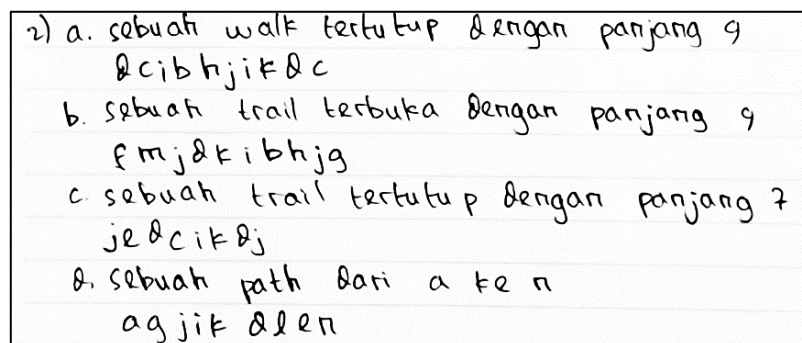 2) a. sebuah walk tertutup dengan panjang 9
dcibhjikdc
b. sebuah trail terbuka dengan panjang 9
fmjdkibhjg
c. sebuah trail tertutup dengan panjang 7
jedcikdj
d. sebuah path dari a ke n
agjikdlen